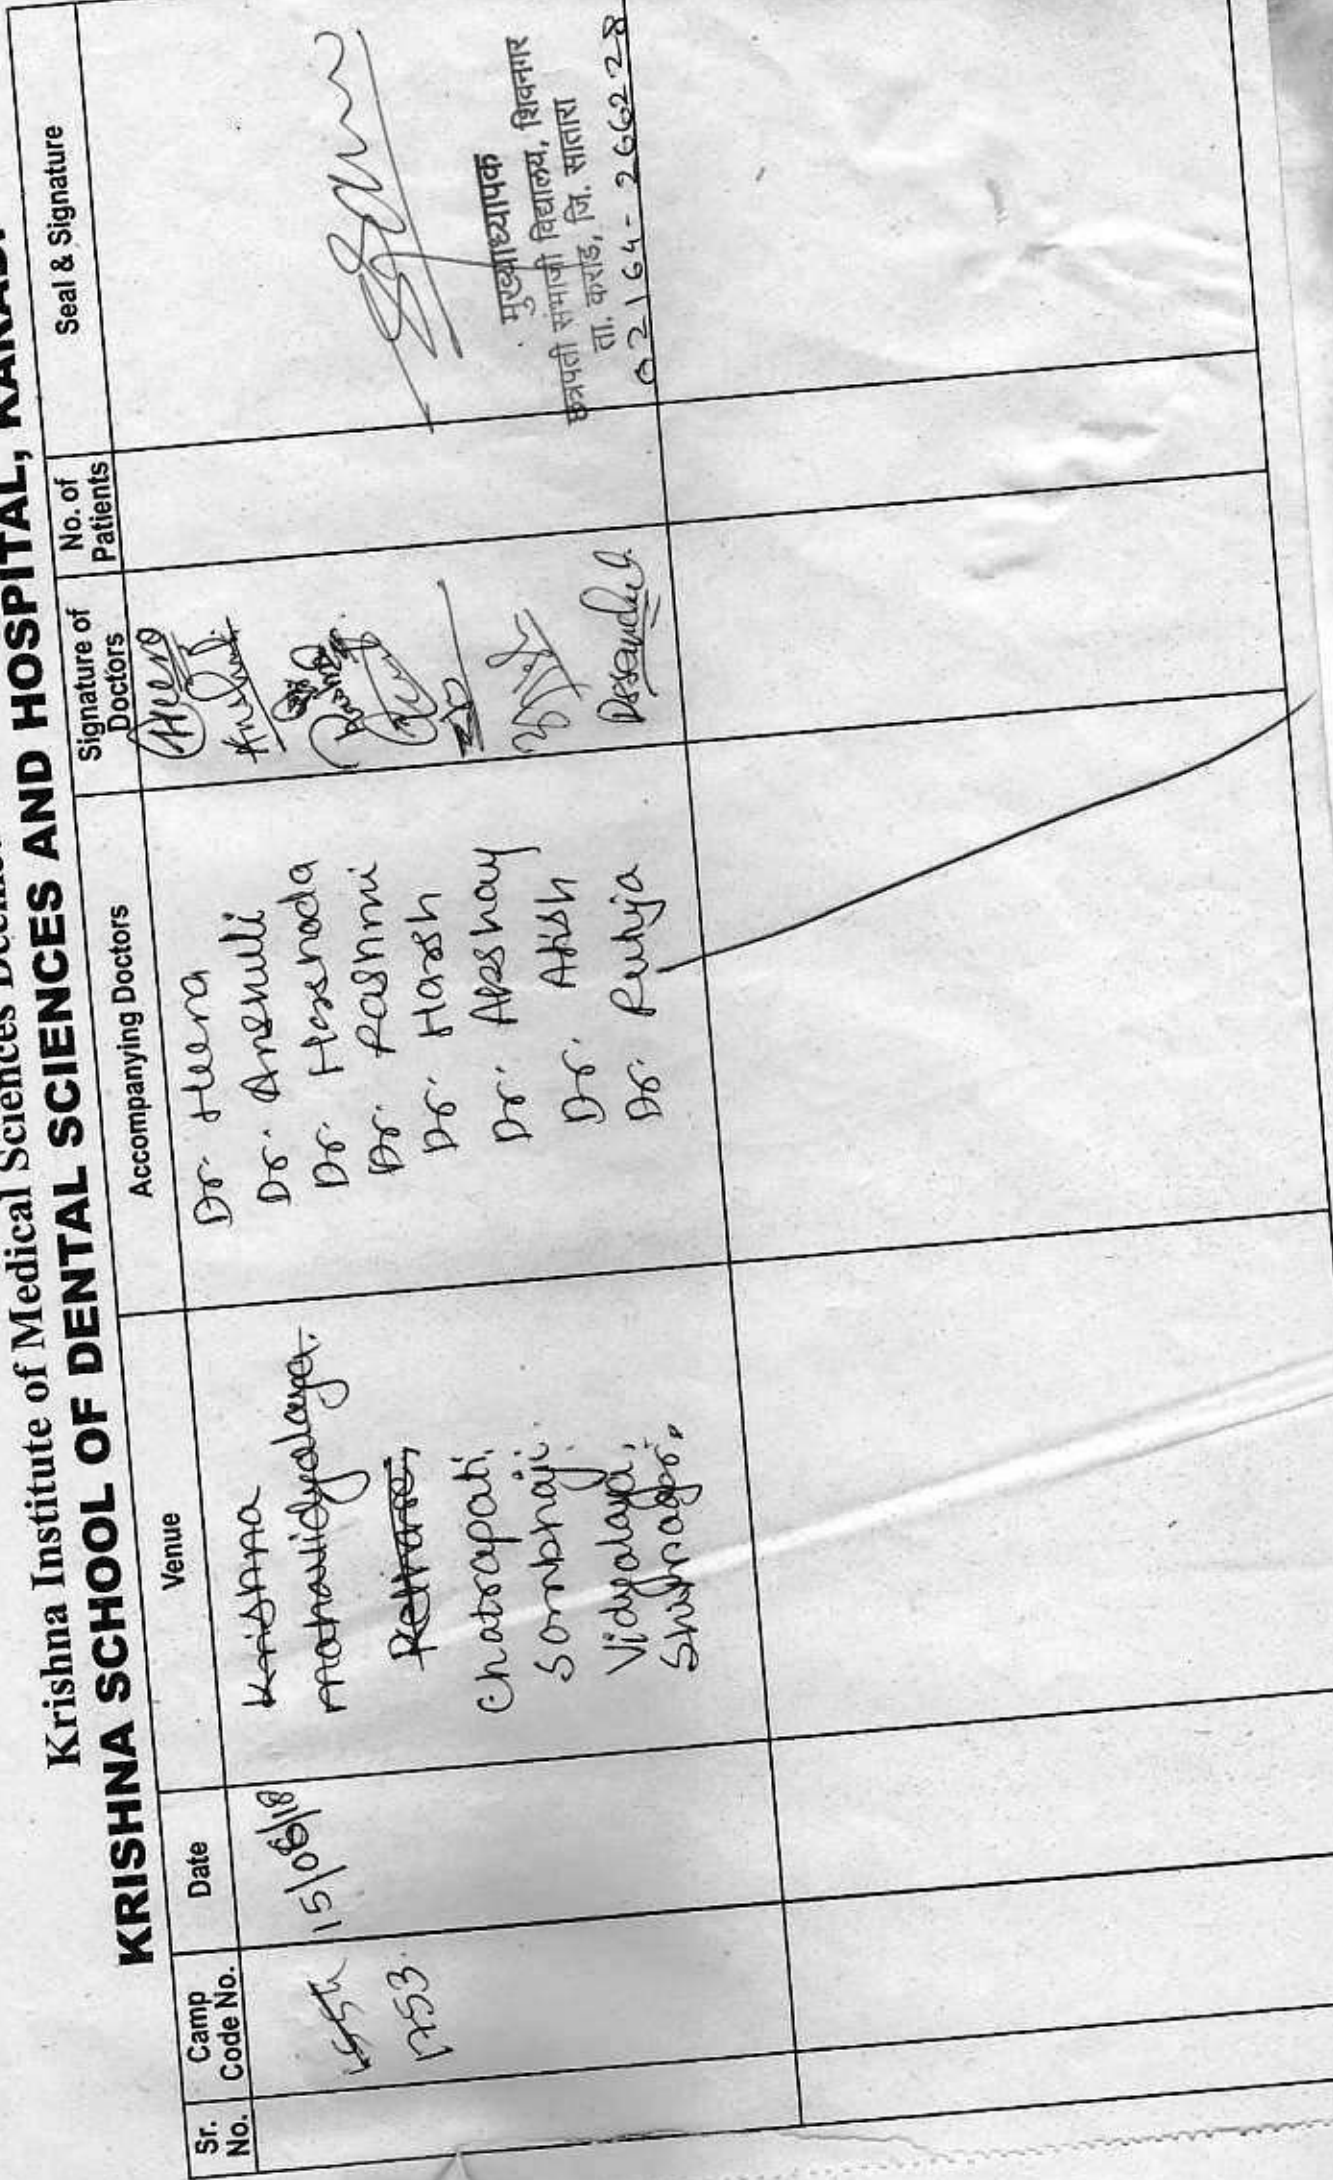 Krishna Institute of Medical Sciences
KRISHNA SCHOOL OF DENTAL SCIENCES AND HOSPITAL, KARAD.
Sr. No.
Camp Code No.
Date
Venue
Accompanying Doctors
Signature of Doctors
No. of Patients
Seal & Signature
1753.
15/08/18
Krishna
mahavidyalaya.
Rethare,
Chatrapati.
Sambhaji.
Vidyalaya,
Shivnagar.
Dr. Heena
Dr. Anshulli
Dr. Harshada
Dr. Rashmi
Dr. Harsh
Dr. Akshay
Dr. Atish
Dr. Rutuja
Heena
मुख्याध्यापक
छत्रपती संभाजी विद्यालय, शिवनगर
ता. कराड, जि. सातारा
02164-266228